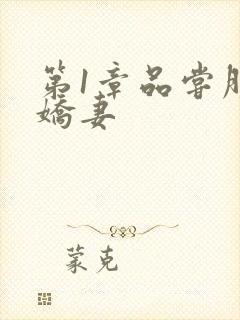 第1章品尝
娇妻
蒙克